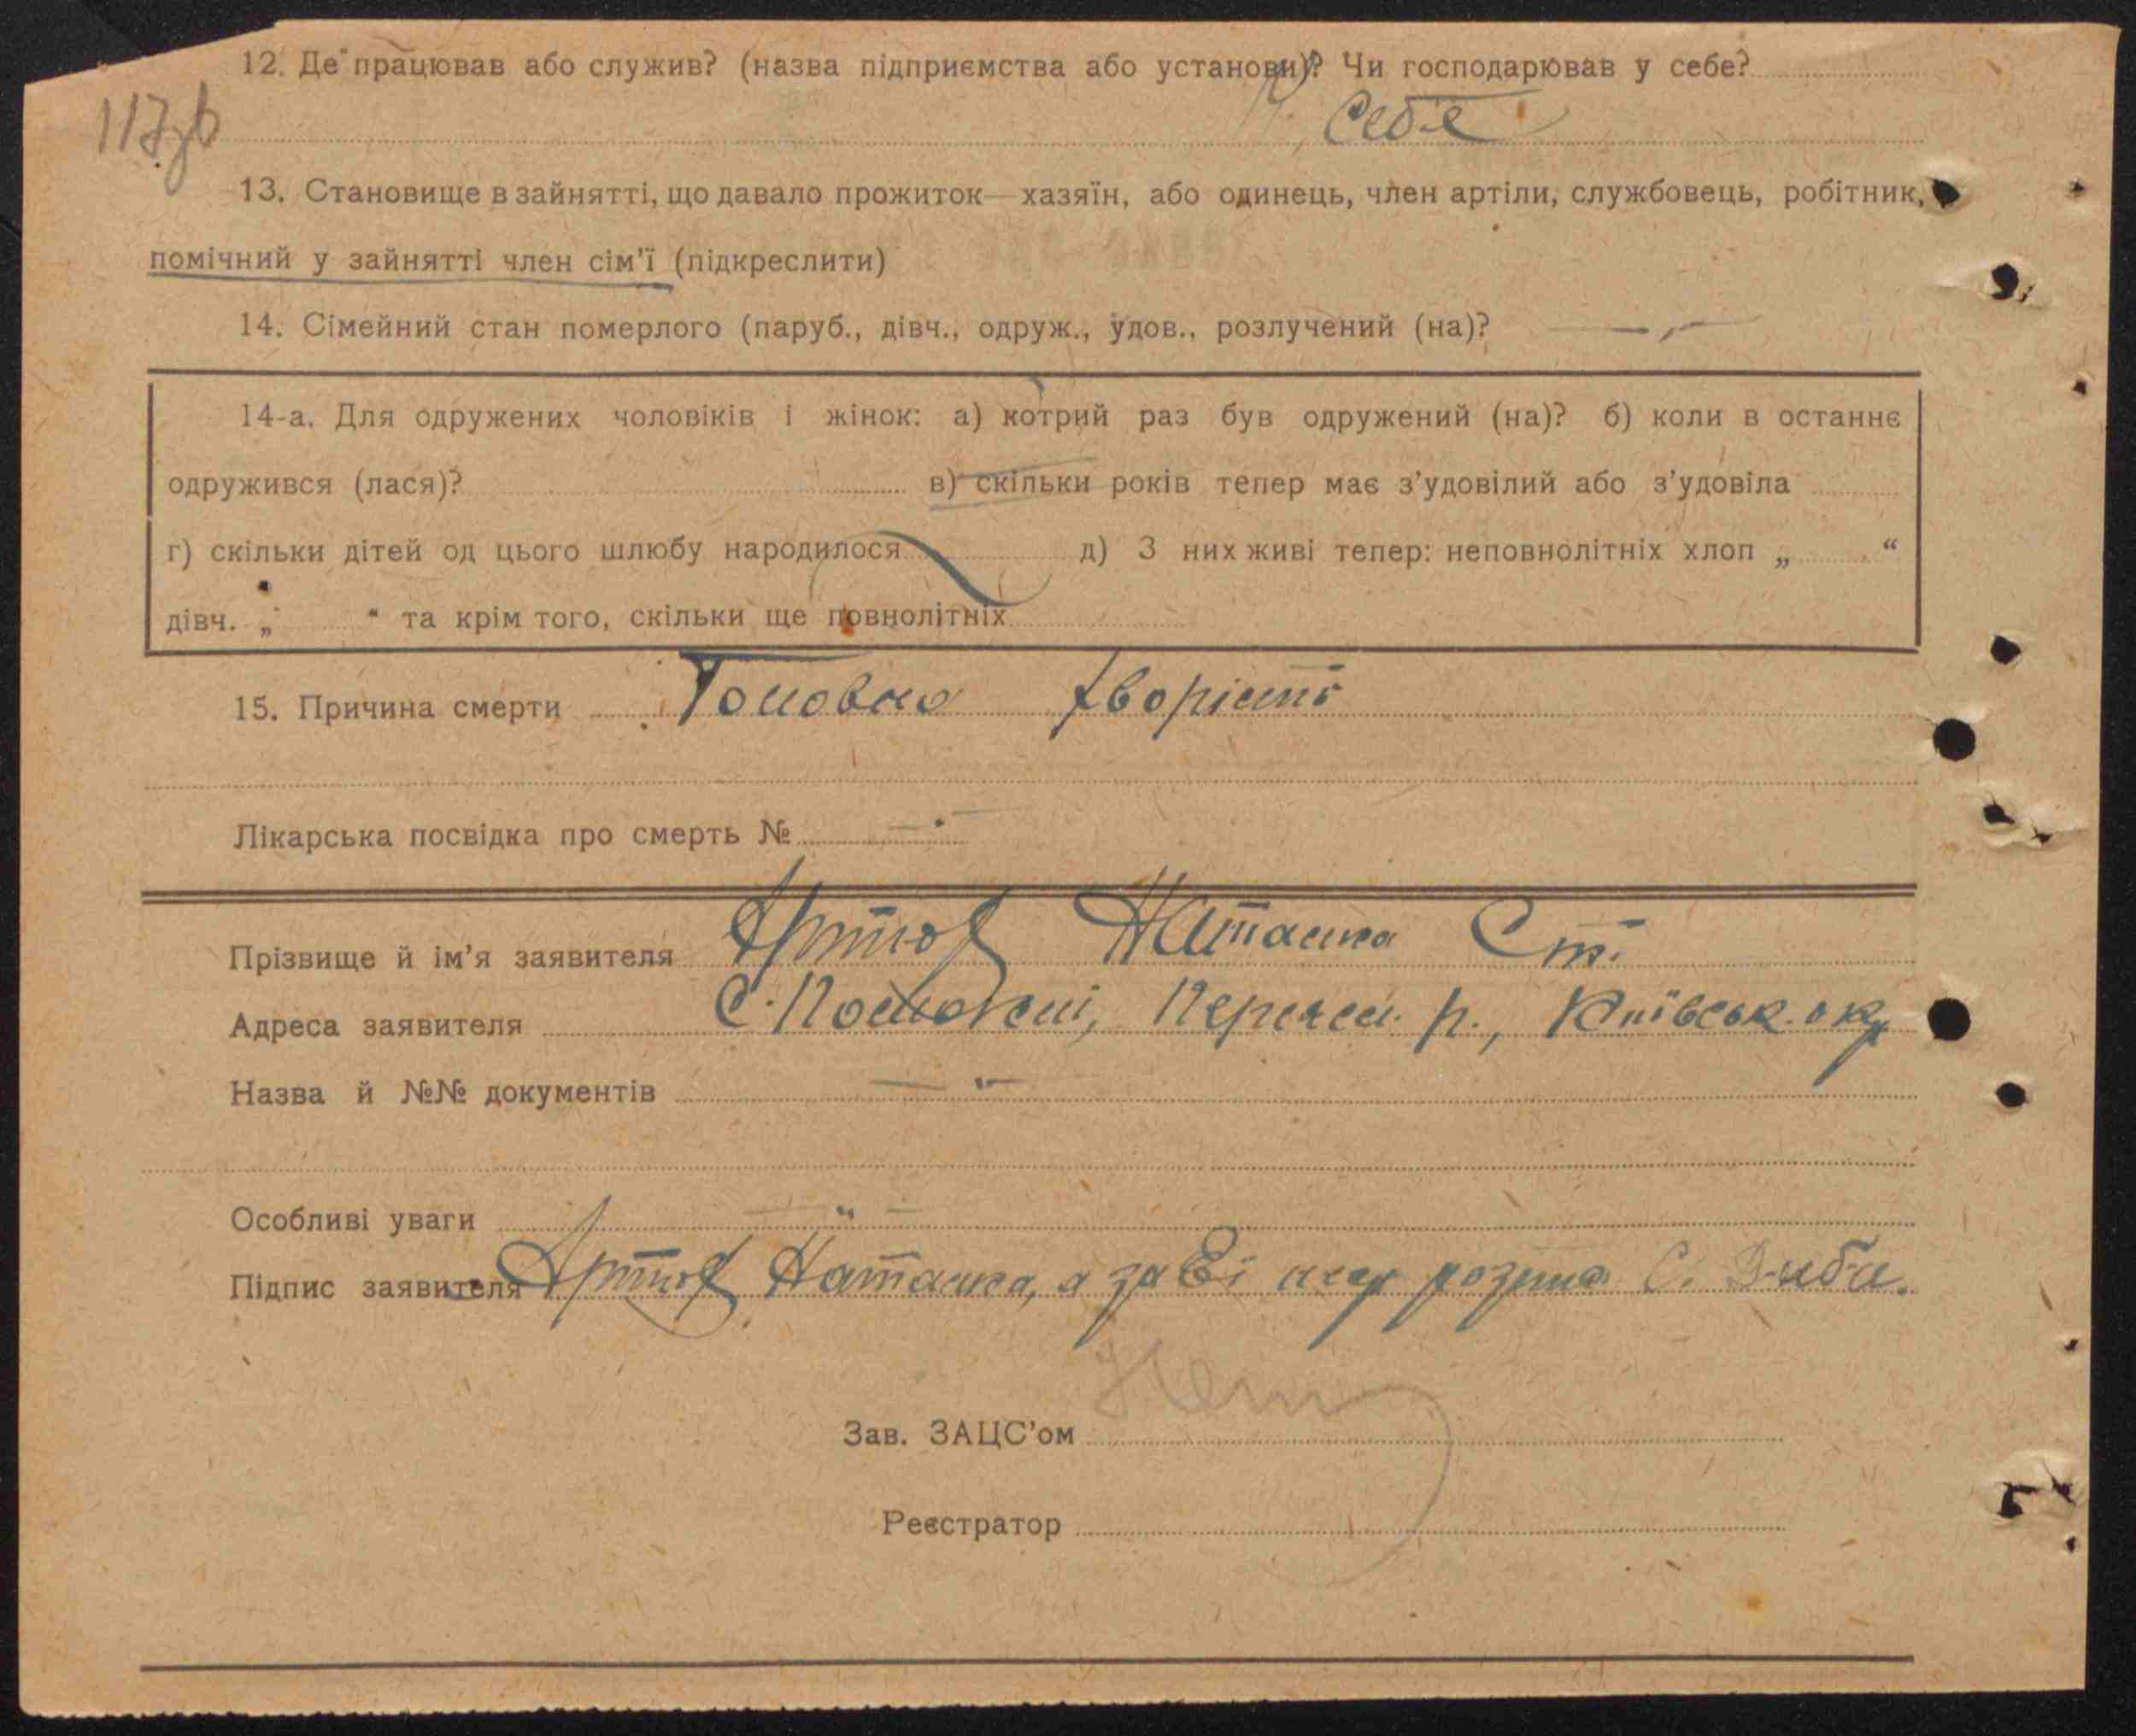 12. Де працював або служив? (назва підприємства або установи)? Чи господарював у себе?
117зв
у Себе
13. Становище в зайнятті, що давало прожиток — хазяїн, або одинець, член артіли, службовець, робітник,
помічний у зайнятті член сім'ї (підкреслити)
14. Сімейний стан померлого (паруб., дівч., одруж., удов., розлучений (на)?
14-а. Для одружених чоловіків і жінок: а) котрий раз був одружений (на)? б) коли в останнє
одружився (лася)? в) скільки років тепер має з'удовілий або з'удовіла
г) скільки дітей од цього шлюбу народилося д) З них живі тепер: неповнолітніх хлоп „ “
дівч. „ “ та крім того, скільки ще повнолітніх
15. Причина смерти Головна хворість
Лікарська посвідка про смерть №
Прізвище й ім'я заявителя Наталка Ст.
Адреса заявителя с. р., Київськ. окр
Назва й №№ документів
Особливі уваги
Підпис заявителя Наталка, а за Її С.
Зав. ЗАЦС'ом
Реєстратор